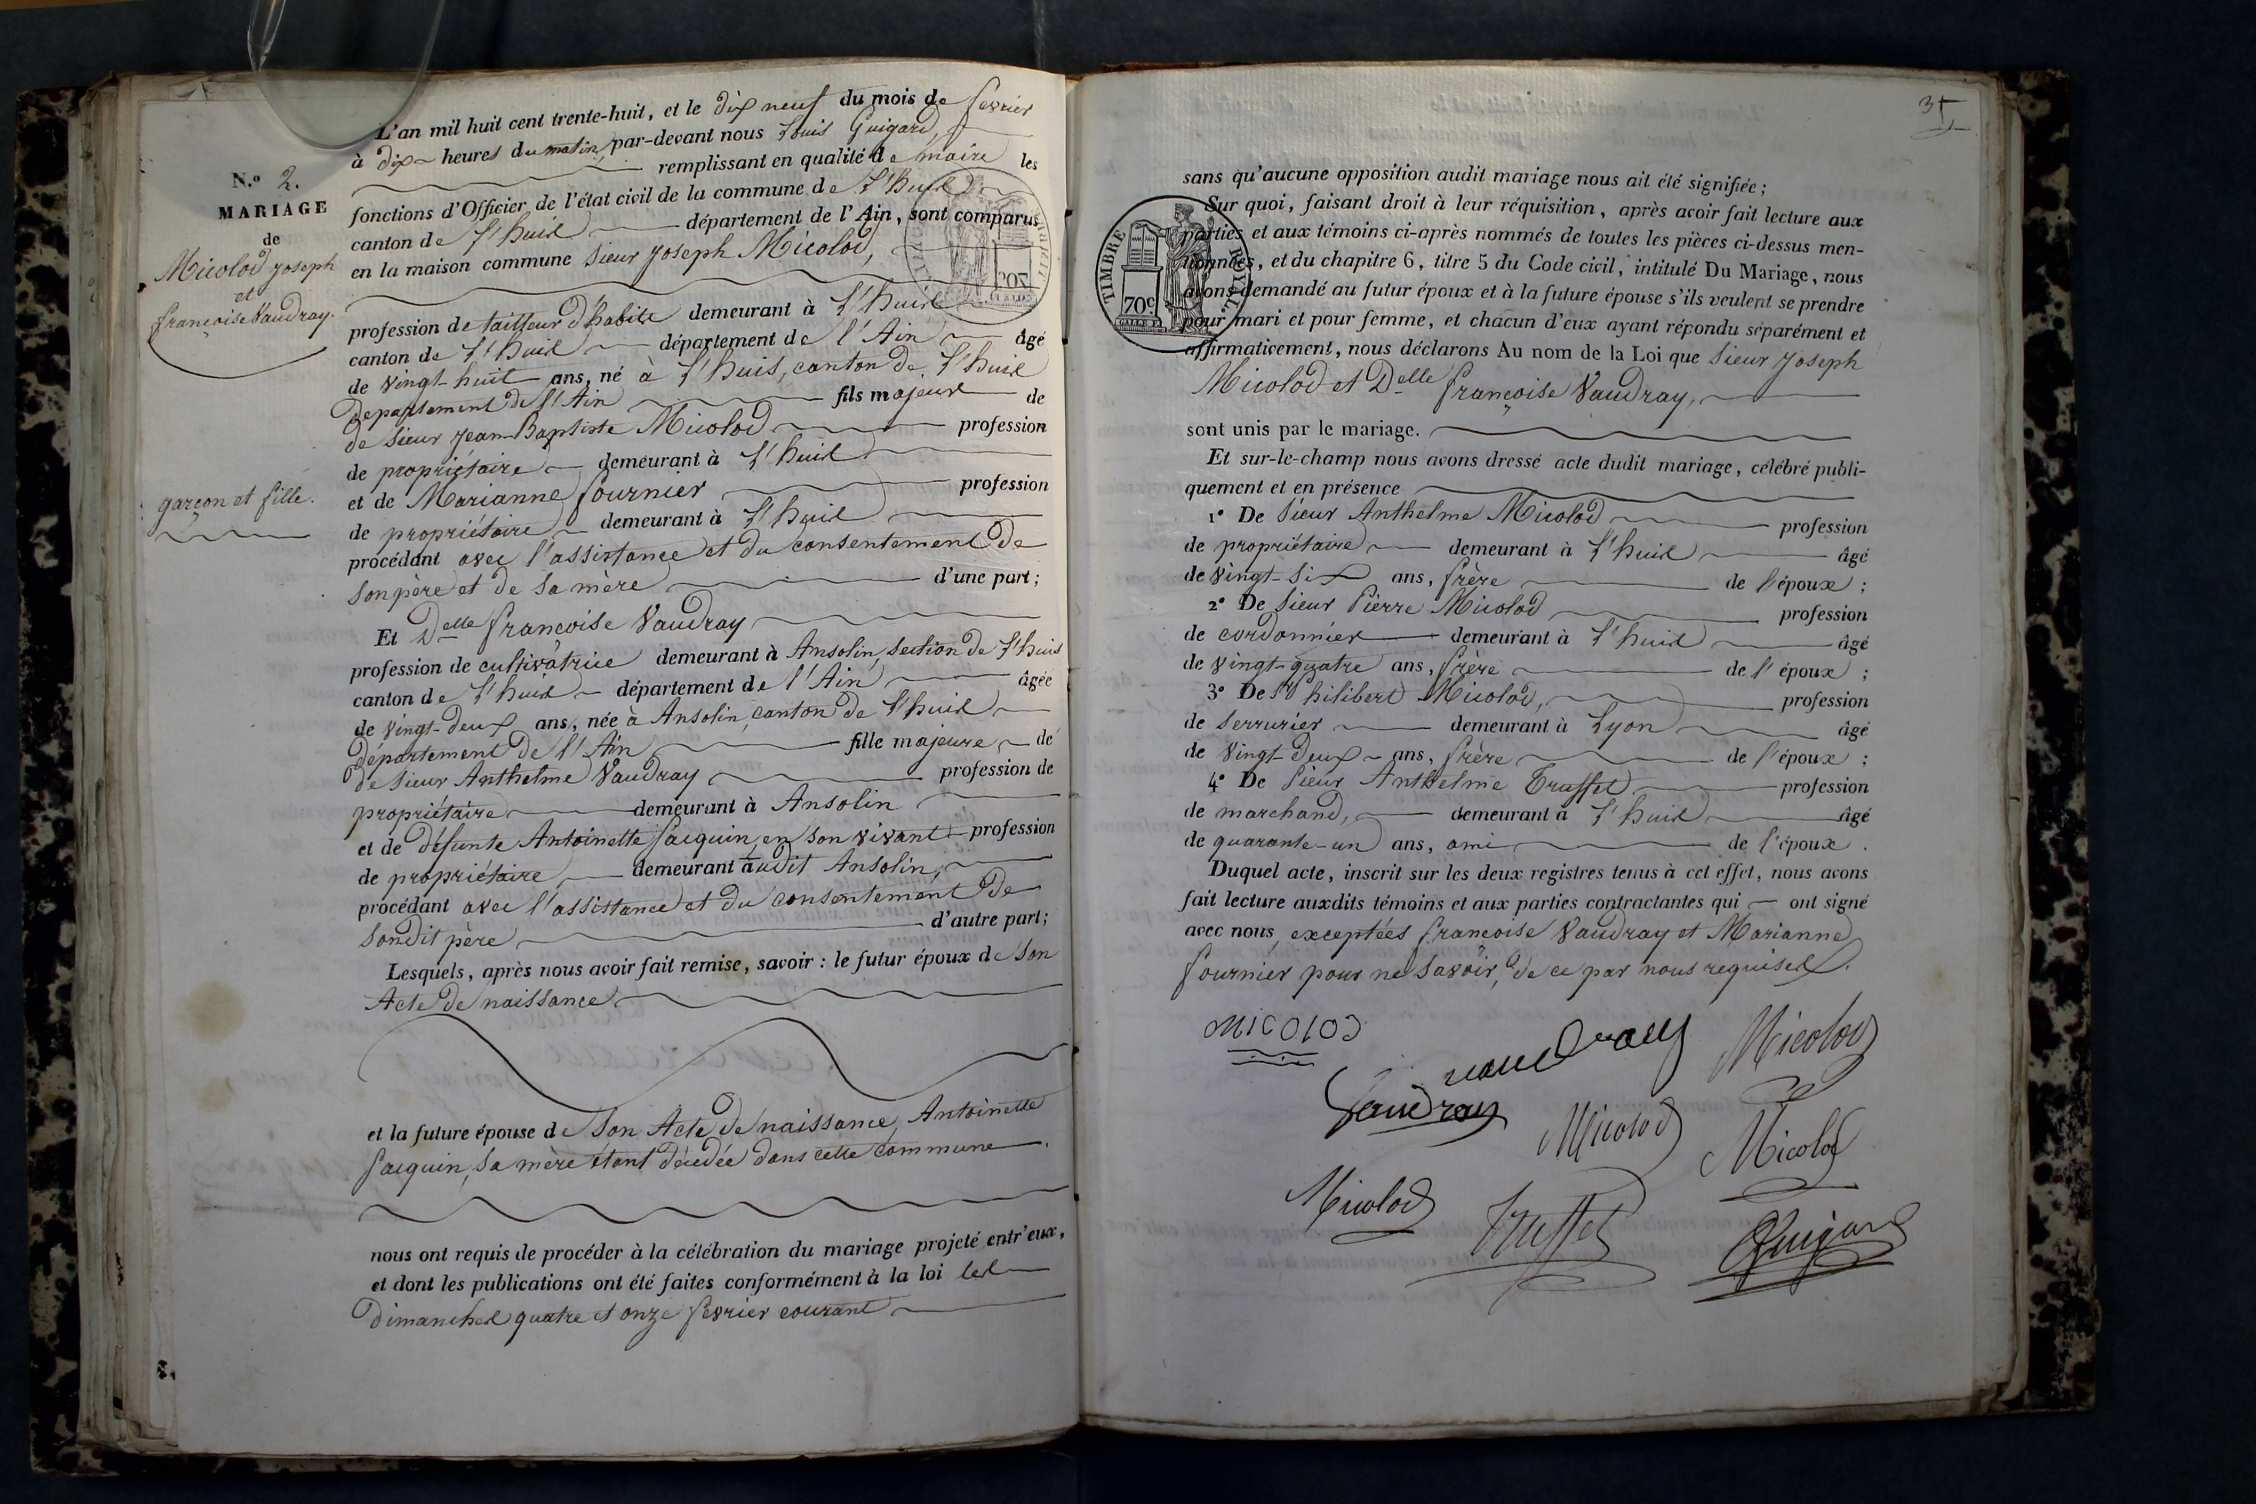 N.° 2.
MARIAGE
de
Micolod Joseph
et
françoise Vaudray.
garçon et fille.
L'an mil huit cent trente-huit, et le dix neuf du mois de fevrier
à dix heures du matin, par-devant nous Louis Guigard,
remplissant en qualité de maire les
fonctions d'Officier de l'état civil de la commune de L'huis
canton de L'huis département de l'Ain, sont comparus
en la maison commune Sieur Joseph Micolod,
profession de tailleur d'habits demeurant à L'huis
canton de L'huis département de l'Ain âgé
de vingt-huit ans, né à L'huis, canton de L'huis
departement de l'Ain fils majeur de
de Sieur Jean-Baptiste Micolod profession
de propriétaire demeurant à L'huis
et de Marianne fournier profession
de propriétaire demeurant à L'huis
procédant avec l'assistance et du consentement de
son père et de sa mère d'une part;
Et Delle françoise Vaudray
profession de cultivatrice demeurant à Ansolin, section de L'huis
canton de L'huis département de l'Ain âgée
de vingt-deux ans, née à Ansolin, canton de L'huis
département de l'Ain fille majeure de
de Sieur Anthelme Vaudray profession de
propriétaire demeurant à Ansolin
et de défunte Antoinette Jacquin, en son vivant profession
de propriétaire demeurant audit Ansolin,
procédant avec l'assistance et du consentement de
sondit père, d'autre part;
Lesquels, après nous avoir fait remise, savoir : le futur époux de son
Acte de naissance
et la future épouse de son Acte de naissance, Antoinette
Jacquin, sa mère étant décédée dans cette commune.
nous ont requis de procéder à la célébration du mariage projeté entr'eux,
et dont les publications ont été faites conformément à la loi les
dimanches quatre et onze fevrier courant
3
TIMBRE ROYAL.
70c
sans qu'aucune opposition audit mariage nous ait été signifiée;
Sur quoi, faisant droit à leur réquisition, après avoir fait lecture aux
parties et aux témoins ci-après nommés de toutes les pièces ci-dessus men-
tionnées, et du chapitre 6, titre 5 du Code civil, intitulé Du Mariage, nous
avons demandé au futur époux et à la future épouse s'ils veulent se prendre
pour mari et pour femme, et chacun d'eux ayant répondu séparément et
affirmativement, nous déclarons Au nom de la Loi que Sieur Joseph
Micolod et Delle françoise Vaudray,
sont unis par le mariage.
Et sur-le-champ nous avons dressé acte dudit mariage, célébré publi-
quement et en présence
1° De Sieur Anthelme Micolod profession
de propriétaire demeurant à L'huis âgé
de vingt-six ans, frère de l'époux ;
2° De Sieur Pierre Micolod profession
de cordonnier demeurant à L'huis âgé
de vingt-quatre ans, frère de l'époux ;
3° De Sr Philibert Micolod, profession
de serrurier demeurant à Lyon âgé
de vingt-deux ans, frère de l'époux ;
4° De Sieur Anthelme Truffet profession
de marchand, demeurant à L'huis âgé
de quarante-un ans, ami de l'époux.
Duquel acte, inscrit sur les deux registres tenus à cet effet, nous avons
fait lecture auxdits témoins et aux parties contractantes qui ont signé
avec nous, exceptées francoise Vaudray et Marianne
fournier pour ne savoir, de ce par nous requises.
MICOLOD
vaudray
Micolod
Vaudray
Micolod
Micolod
Micolod
Truffet
Guigard